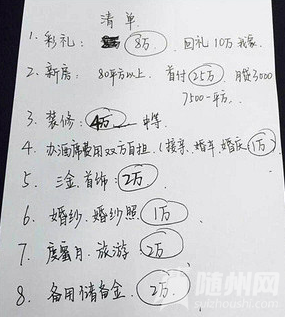 清单
1. 彩礼： 8万 . 回礼10万我家
2. 新房： 80平方以上. 首付25万 月贷3000
7500一平方.
3. 装修： 4万 中等.
4. 办酒席费用双方自担. (接亲、婚车、婚庆1万)
5. 三金首饰：2万
6. 婚纱. 婚纱照 1万
7. 度蜜月. 旅游 2万
8. 备用储备金. 2万.
随州网
suizhoushi.com